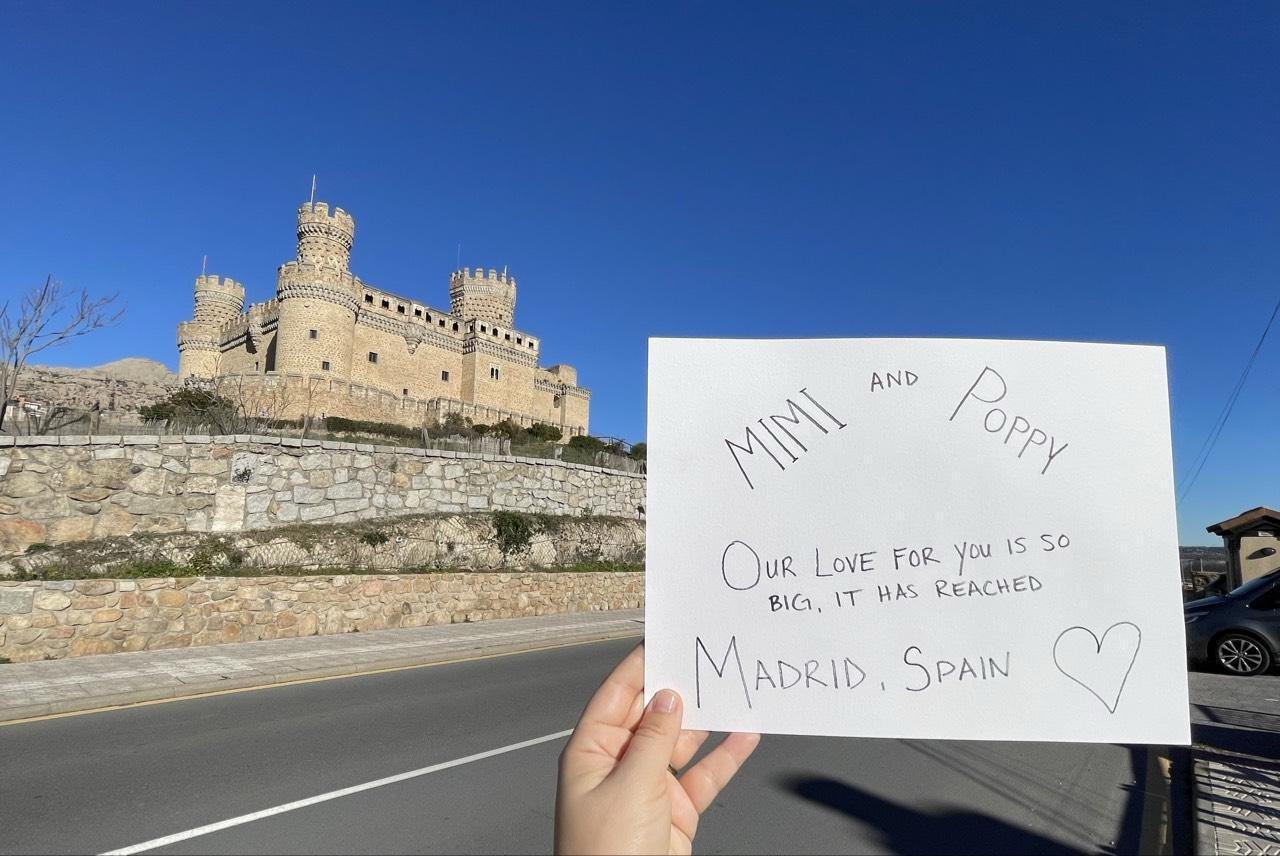 MIMI AND POPPY
OUR LOVE FOR YOU IS SO
BIG, IT HAS REACHED
MADRID, SPAIN